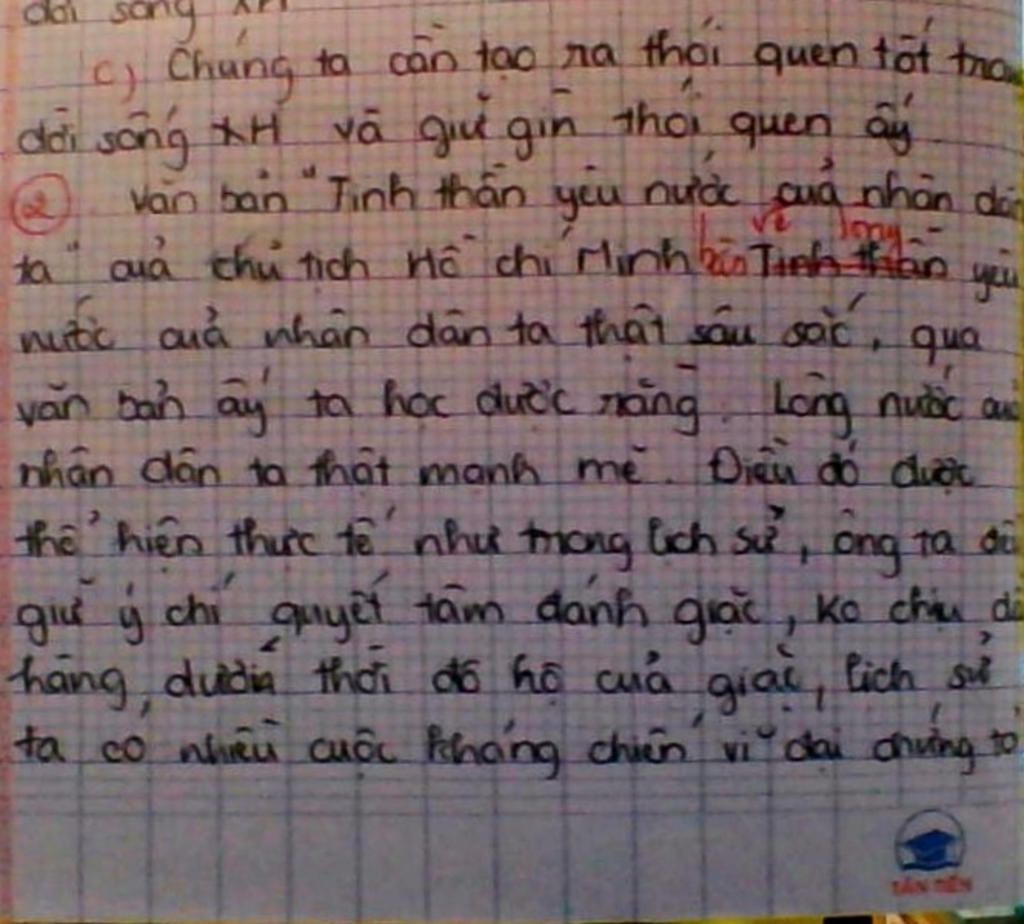 đời sống XH
c) Chúng ta cần tạo ra thói quen tốt trong
đời sống XH và giữ gìn thói quen ấy
② Văn bản "Tinh thần yêu nước của nhân dân
ta" của chủ tịch Hồ Chí Minh bàn về lòng Tinh thần yêu
nước của nhân dân ta thật sâu sắc, qua
văn bản ấy ta học được rằng. Lòng nước của
nhân dân ta thật mạnh mẽ. Điều đó được
thể hiện thực tế như trong lịch sử, ông ta đã
giữ ý chí quyết tâm đánh giặc, ko chịu đầu
hàng, dưới thời đô hộ của giặc, lịch sử
ta có nhiều cuộc kháng chiến vĩ đại chứng tỏ
TÂN TIẾN